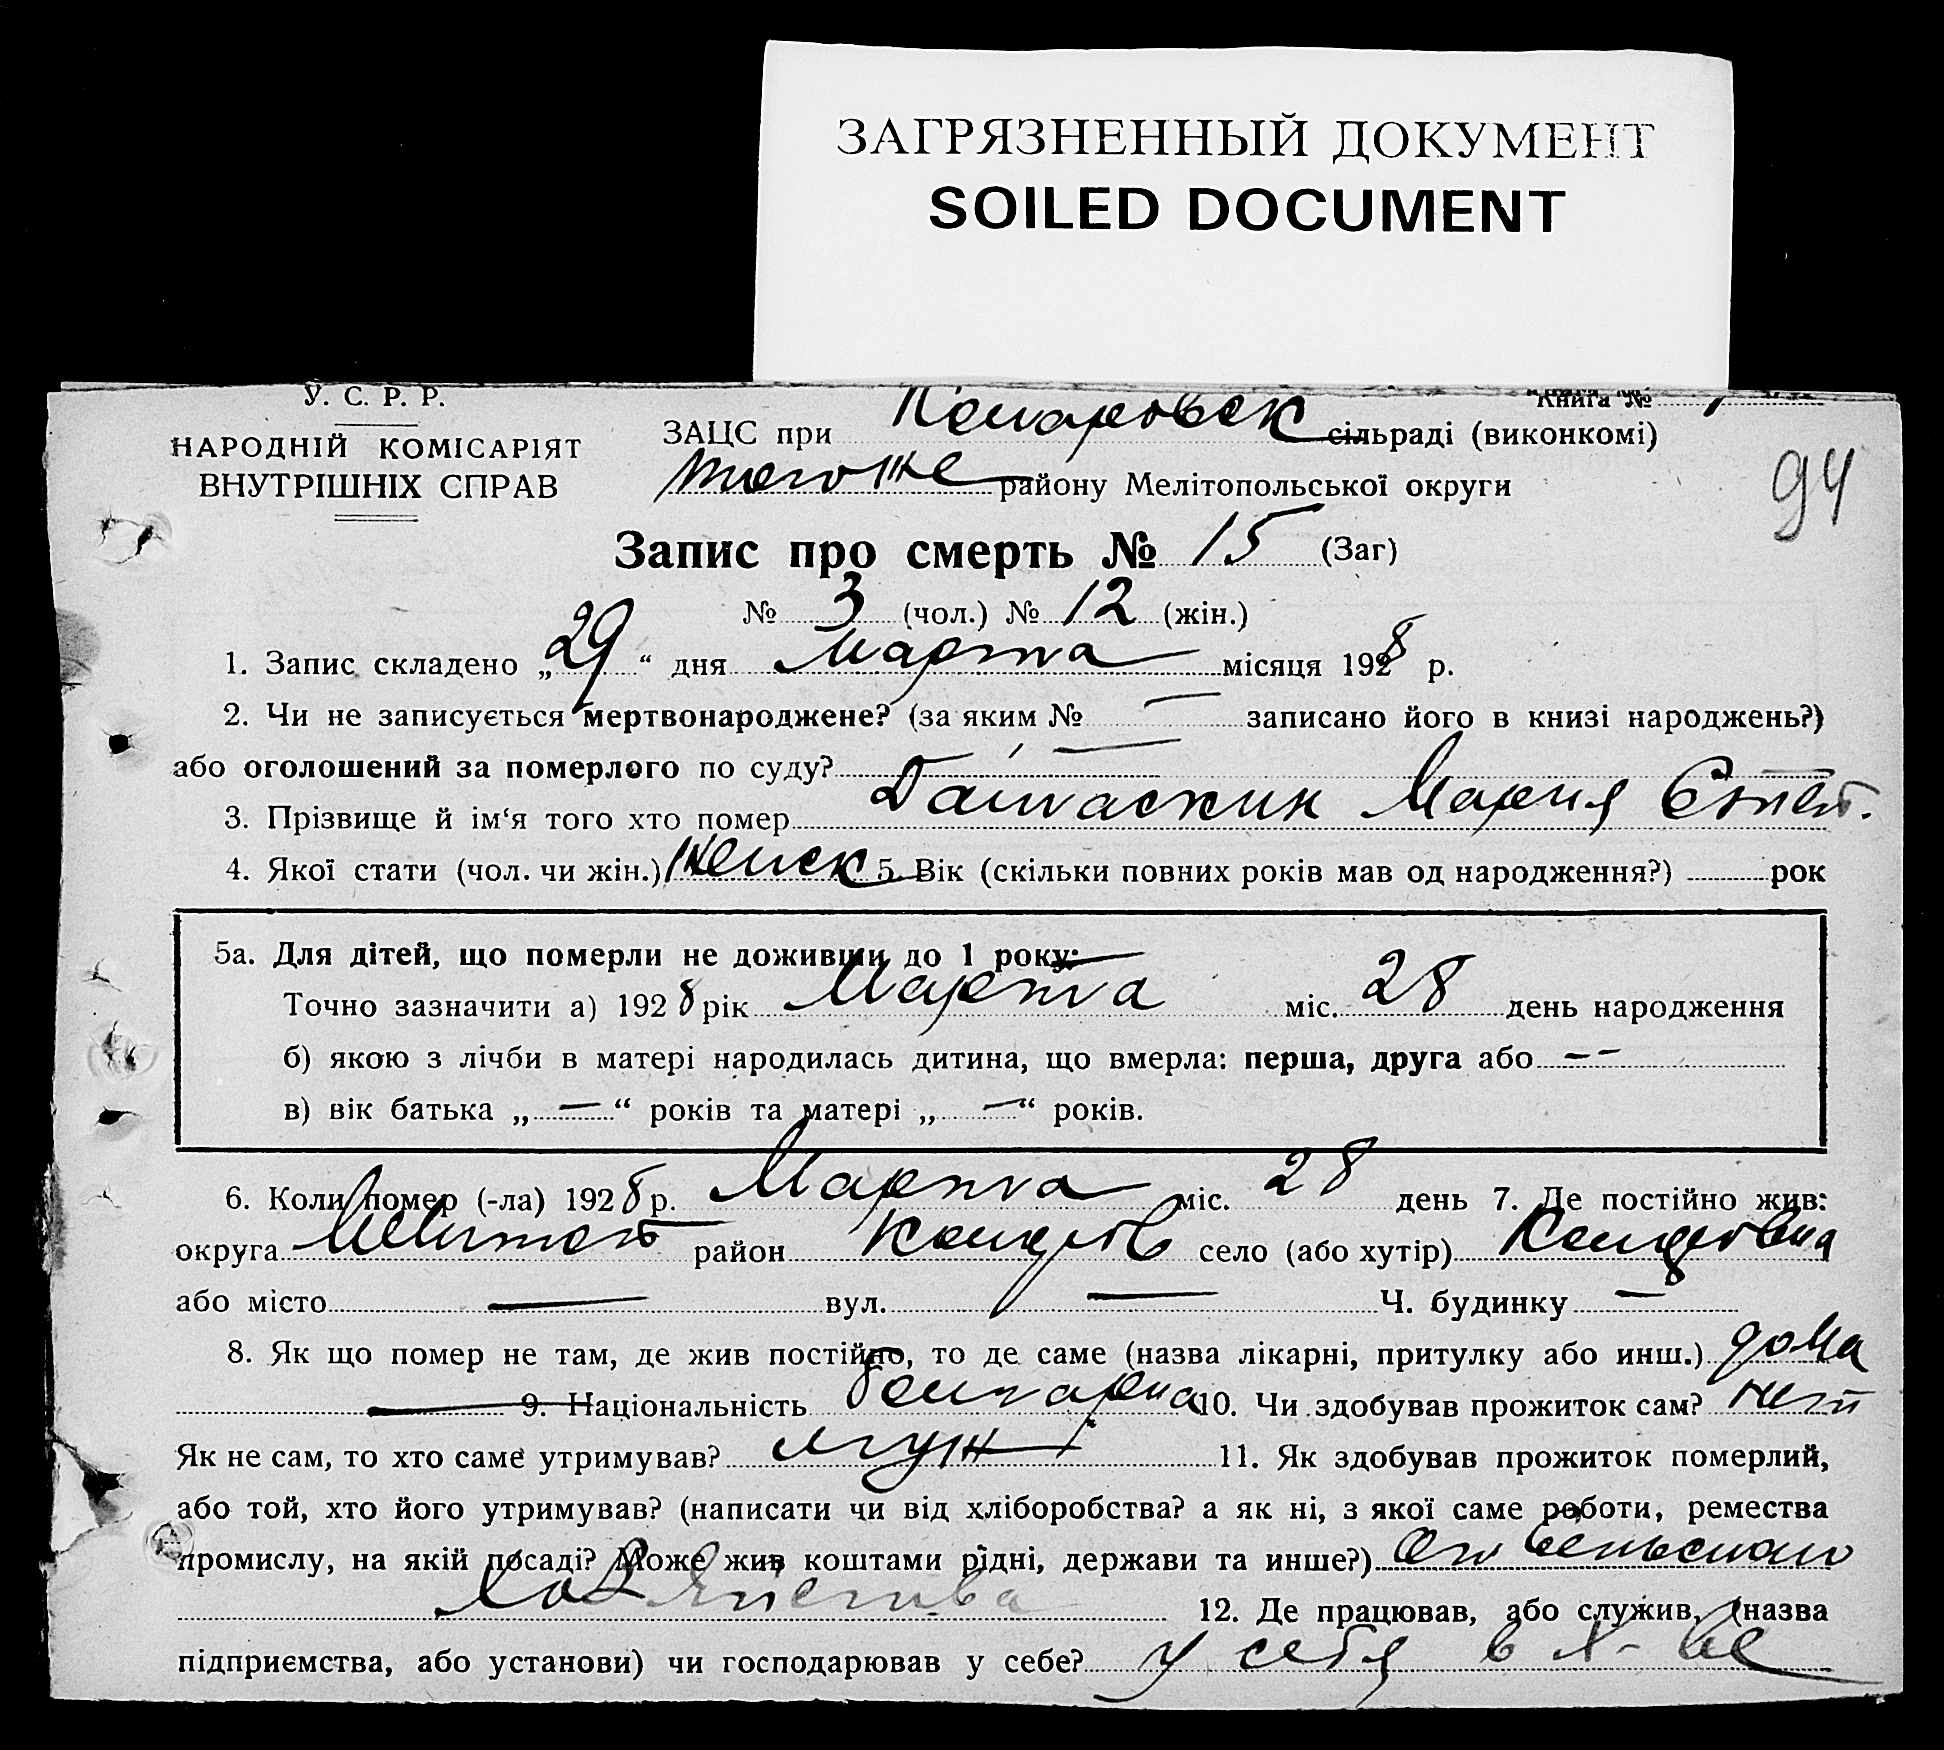 ЗАГРЯЗНЕННЫЙ ДОКУМЕНТ
SOILED DOCUMENT
У. С. Р. Р.
Книга №
НАРОДНІЙ КОМІСАРІЯТ
ВНУТРІШНІХ СПРАВ
ЗАЦС при сільраді (виконкомі)
тогоже району Мелітопольської округи
94
Запис про смерть № 15 (Заг)
№ 3 (чол.) № 12 (жін.)
1. Запис складено „29“ дня Марта місяця 1928 р.
2. Чи не записується мертвонароджене? (за яким № — записано його в книзі народжень?)
або оголошений за померлого по суду? —
3. Прізвище й ім‘я того хто помер Мария
4. Якої стати (чол. чи жін.) Женск 5. Вік (скільки повних років мав од народження?) рок
5а. Для дітей, що померли не доживши до 1 року:
Точно зазначити а) 1928 рік Марта міс. 28 день народження
б) якою з лічби в матері народилась дитина, що вмерла: перша, друга або — —
в) вік батька „ — “ років та матері „ — “ років.
6. Коли помер (-ла) 1928 р. Марта міс. 28 день 7. Де постійно жив:
округа Мелитоп район село (або хутір)
або місто — вул. — Ч. будинку —
8. Як що помер не там, де жив постійно, то де саме (назва лікарні, притулку або инш.) дома
9. Національність 10. Чи здобував прожиток сам? нет
Як не сам, то хто саме утримував? муж 11. Як здобував прожиток померлий,
або той, хто його утримував? (написати чи від хліборобства? а як ні, з якої саме роботи, ремества
промислу, на якій посаді? Може жив коштами рідні, держави та инше?) От сельского
хозяйства 12. Де працював, або служив, (назва
підприємства, або установи) чи господарював у себе? у себя в х-ве